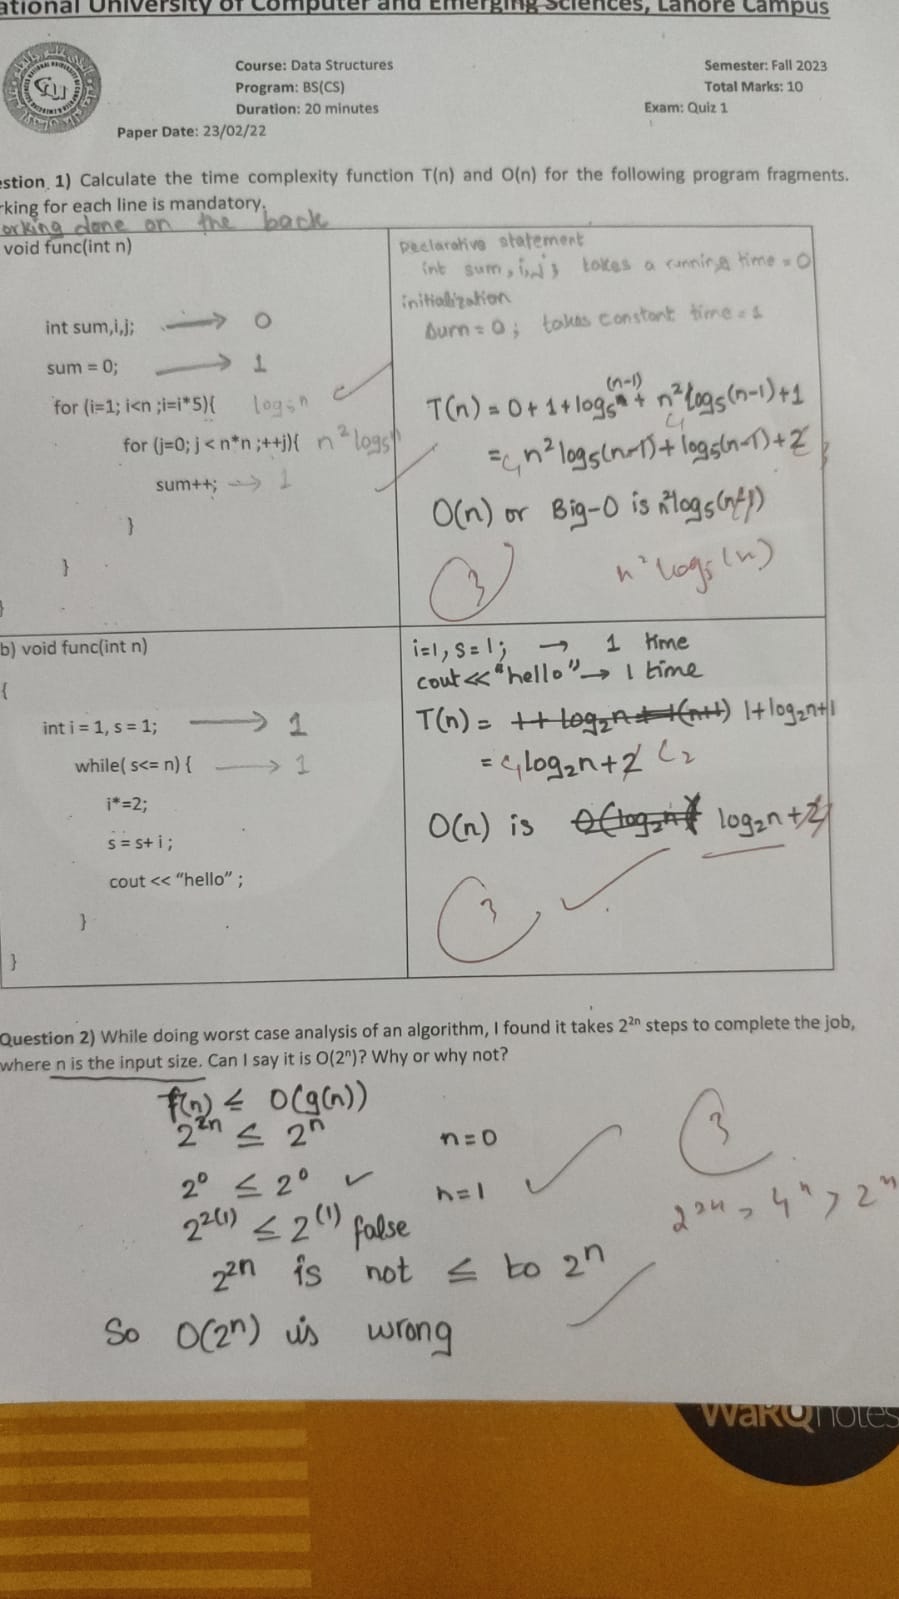 ational University of Computer and Emerging Sciences, Lahore Campus
Course: Data Structures
Program: BS(CS)
Duration: 20 minutes
Paper Date: 23/02/22
Semester: Fall 2023
Total Marks: 10
Exam: Quiz 1
estion 1) Calculate the time complexity function T(n) and O(n) for the following program fragments.
rking for each line is mandatory.
orking done on the back
void func(int n)
int sum,i,j; → 0
sum = 0; → 1
for (i=1; i<n ;i=i*5){ log₅n
for (j=0; j < n*n ;++j){ n²log₅n
sum++; → 1
}
}
}
Declarative statement
int sum, i, j; takes a running time = 0
initialization
sum = 0; takes constant time = 1
(n-1)
T(n) = 0 + 1 + log₅ + n²log₅(n-1)+1
= C₁n²log₅(n-1) + log₅(n-1) + 2
O(n) or Big-O is n²log₅(n-1)
n² log₅(n)
3
b) void func(int n)
{
int i = 1, s = 1; → 1
while( s<= n) { → 1
i*=2;
s = s+ i ;
cout << “hello” ;
}
}
i=1, s=1; → 1 time
cout << "hello" → 1 time
T(n) = 1+log₂n+1
= C₁log₂n + 2 C₂
O(n) is log₂n + 2
3
Question 2) While doing worst case analysis of an algorithm, I found it takes 2²ⁿ steps to complete the job,
where n is the input size. Can I say it is O(2ⁿ)? Why or why not?
f(n) ≤ O(g(n))
2²ⁿ ≤ 2ⁿ n=0
2⁰ ≤ 2⁰ ✓ n=1
2²⁽¹⁾ ≤ 2⁽¹⁾ false
2²ⁿ is not ≤ to 2ⁿ
So O(2ⁿ) is wrong
3
2²ⁿ = 4ⁿ > 2ⁿ
WaRQnotes